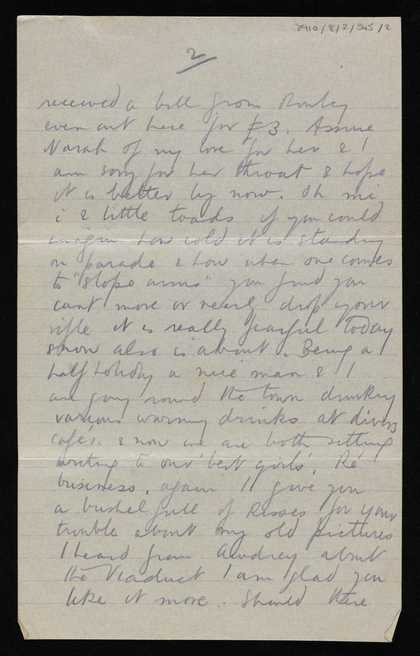 8910/8/2/515/2
2
received a bill from Rowley
even out here for £3. Assure
Norah of my love for her & I
am sorry for her throat & hope
it is better by now. Oh mi
i & little toads if you could
imagin how cold it is standing
on parade & how when one comes
to "slope arms" you find you
cant move or nearly drop your
rifle it is really fearful today
snow also is about. Being a
half holiday a nice man & I
are going round the town drinking
various warming drinks at divers
cafes. & now we are both sitting
writing to our 'best girls'. Re
business, again I'll give you
a bushel full of kisses for your
trouble about my old pictures
I heard from Audrey about
the Viaduct I am glad you
like it more. Should there